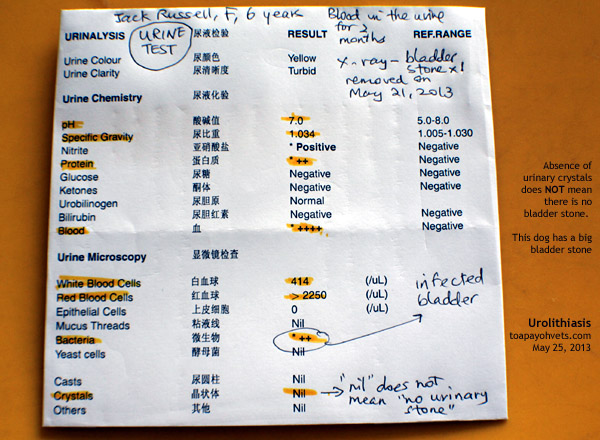 Jack Russell, F, 6 years
Blood in the urine
for 2
months
URINALYSIS 尿液检验 RESULT REF.RANGE
URINE
TEST
Urine Colour 尿颜色 Yellow
Urine Clarity 尿清晰度 Turbid
x-ray - bladder
stone x 1
removed on
May 21, 2013
Urine Chemistry 尿液化验
pH 酸碱值 7.0 5.0-8.0
Specific Gravity 尿比重 1.034 1.005-1.030
Nitrite 亚硝酸盐 * Positive Negative
Protein 蛋白质 * ++ Negative
Glucose 尿糖 Negative Negative
Ketones 酮体 Negative Negative
Urobilinogen 尿胆原 Normal
Bilirubin 尿胆红素 Negative Negative
Blood 血 * ++++ Negative
Urine Microscopy 显微镜检查
White Blood Cells 白血球 414 (/uL)
Red Blood Cells 红血球 > 2250 (/uL)
Epithelial Cells 上皮细胞 0 (/uL)
Mucus Threads 粘液线 Nil
Bacteria 微生物 * ++
Yeast cells 酵母菌 Nil
infected
bladder
Casts 尿圆柱 Nil
Crystals 晶状体 Nil
Others 其他 Nil
"nil" does not
mean "no urinary
stone"
Absence of
urinary crystals
does NOT mean
there is no
bladder stone.
This dog has a big
bladder stone
Urolithiasis
toapayohvets.com
May 25, 2013